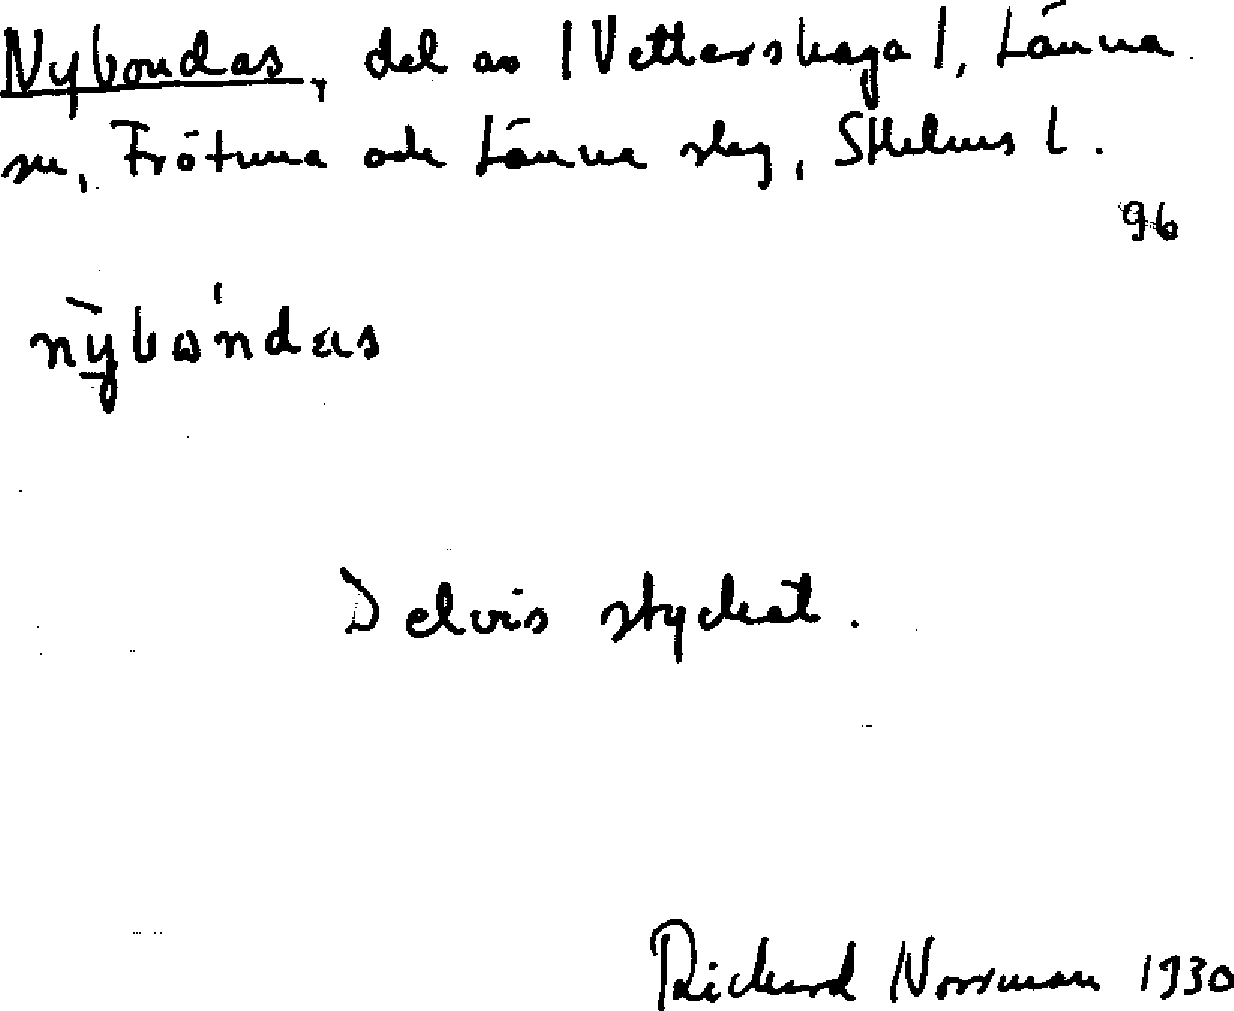 Nybondas, del av |Vettershaga|, Länna
sn, Frötuna och Länna slag, Sthlms l.
96
nỳbo'ndas
Delvis styckat.
Richard Norrman 1930